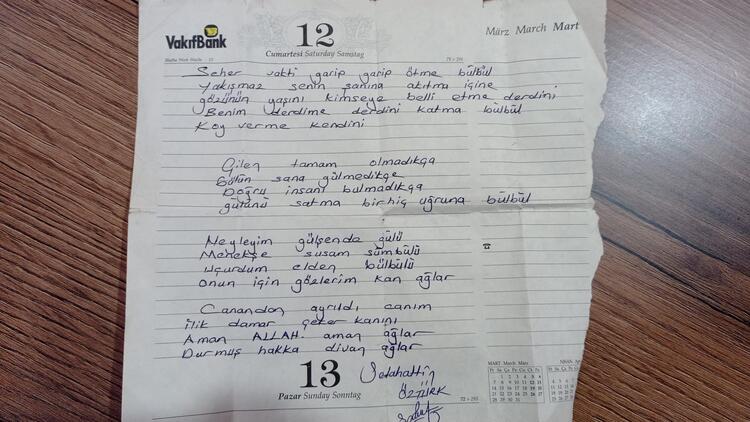 VakıfBank
12
Cumartesi Saturday Samstag
März March Mart
Seher vakti garip garip ötme bülbül
Yakışmaz senin şanına akıtma içine
gözünün yaşını kimseye belli etme derdini
Benim derdime derdini katma bülbül
Koy verme kendini
Çilen tamam olmadıkça
Gülün sana gülmedikçe
Doğru insanı bulmadıkça
gülünü satma birhiç uğruna bülbül
Neyleyim gülşende gülü
Menekşe susam sümbülü
uçurdum elden bülbülü
onun için gözlerim kan ağlar
Canandan ayrıldı canım
ilik damar çeker kanını
Aman ALLAH aman ağlar
Durmuş hakka divan ağlar
13
Pazar Sunday Sonntag
Selahattin
ÖZTÜRK
72 + 293
MART March März